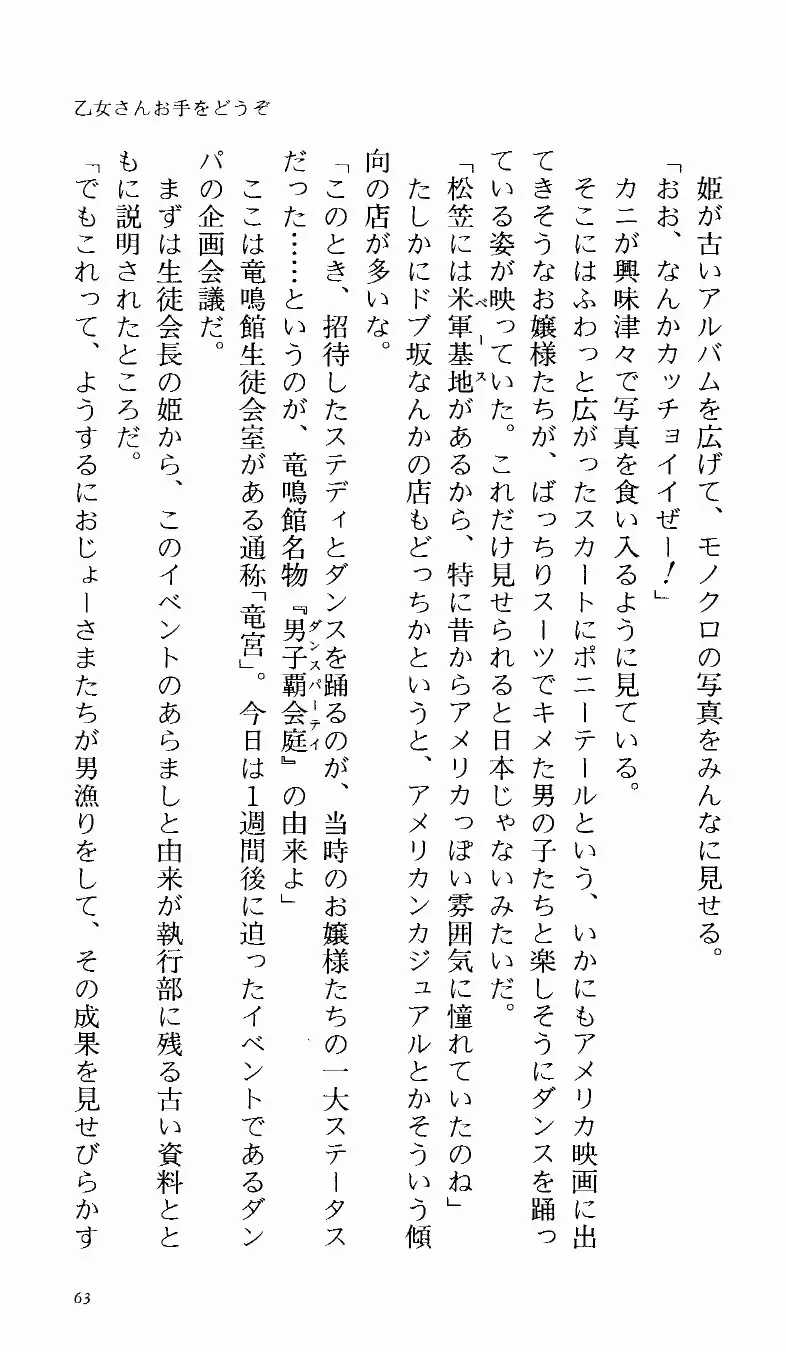 乙女さんお手をどうぞ
　姫が古いアルバムを広げて、モノクロの写真をみんなに見せる。
「おお、なんかカッチョイイぜー！」
　カニが興味津々で写真を食い入るように見ている。
　そこにはふわっと広がったスカートにポニーテールという、いかにもアメリカ映画に出
てきそうなお嬢様たちが、ばっちりスーツでキメた男の子たちと楽しそうにダンスを踊っ
ている姿が映っていた。これだけ見せられると日本じゃないみたいだ。
「松笠には米軍基地ベースがあるから、特に昔からアメリカっぽい雰囲気に憧れていたのね」
　たしかにドブ坂なんかの店もどっちかというと、アメリカンカジュアルとかそういう傾
向の店が多いな。
「このとき、招待したステディとダンスを踊るのが、当時のお嬢様たちの一大ステータス
だった……というのが、竜鳴館名物『男子覇会庭ダンスパーティ』の由来よ」
　ここは竜鳴館生徒会室がある通称「竜宮」。今日は1週間後に迫ったイベントであるダン
パの企画会議だ。
　まずは生徒会長の姫から、このイベントのあらましと由来が執行部に残る古い資料とと
もに説明されたところだ。
「でもこれって、ようするにおじょーさまたちが男漁りをして、その成果を見せびらかす
63